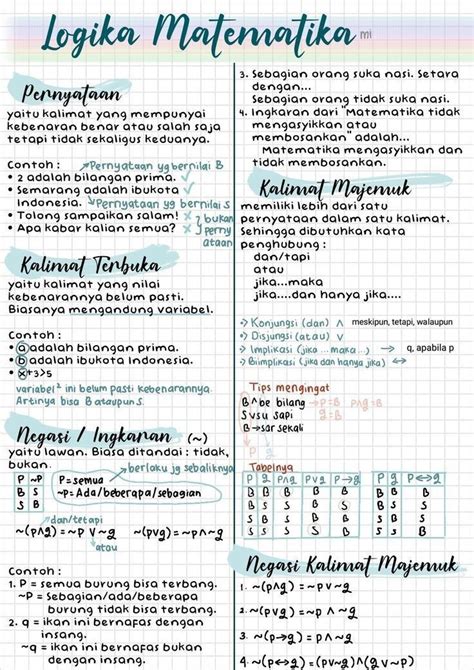 Logika Matematika mi
Pernyataan
yaitu kalimat yang mempunyai
kebenaran benar atau salah saja
tetapi tidak sekaligus keduanya.
Contoh : Pernyataan yg bernilai B
• 2 adalah bilangan prima. ✓
• Semarang adalah ibukota ✓
Indonesia. Pernyataan yg bernilai S
• Tolong sampaikan salam! x
• Apa kabar kalian semua? x
bukan
perny
ataan
Kalimat Terbuka
yaitu kalimat yang nilai
kebenarannya belum pasti.
Biasanya mengandung variabel.
Contoh :
• a adalah bilangan prima.
• b adalah ibukota Indonesia.
• x+3>5
variabel² ini belum pasti kebenarannya.
Artinya bisa B ataupun S.
Negasi / Ingkaran (~)
yaitu lawan. Biasa ditandai : tidak,
bukan.
berlaku jg sebaliknya
P ~P
B S
S B
P=semua
~P=Ada/beberapa/sebagian
dan/tetapi
~(p∧q)=~p∨~q ~(p∨q)=~p∧~q
atau
Contoh :
1. P = semua burung bisa terbang.
~P = Sebagian/ada/beberapa
burung tidak bisa terbang.
2. q = ikan ini bernafas dengan
insang.
~q = ikan ini bernafas tidak
dengan insang.
3. Sebagian orang suka nasi. Setara
dengan...
Sebagian orang tidak suka nasi.
4. Ingkaran dari "Matematika tidak
mengasyikkan atau
membosankan" adalah...
Matematika mengasyikkan dan
tidak membosankan.
Kalimat Majemuk
memiliki lebih dari satu
pernyataan dalam satu kalimat.
Sehingga dibutuhkan kata
penghubung :
dan/tapi
atau
jika...maka
jika....dan hanya jika....
Konjungsi (dan) ∧ meskipun, tetapi, walaupun
Disjungsi (atau) ∨
Implikasi (jika ... maka ...) → q, apabila p
Biimplikasi (jika dan hanya jika) ↔
Tips mengingat
B∧be bilang → P=B P∧q=B
S∨su sapi q=B
B→sar sekali
Tabelnya
P q P∧q P∨q P→q
B B B B B
B S S B S
S B S B B
S S S S B
P q P↔q
B B B
B S S
S B S
S S B
Negasi Kalimat Majemuk
1. ~(p∧q) = ~p∨~q
2. ~(p∨q) = ~p ∧ ~q
3. ~(p→q) = p∧~q
4. ~(p↔q) = (p∨~q)∧(q∨~p)